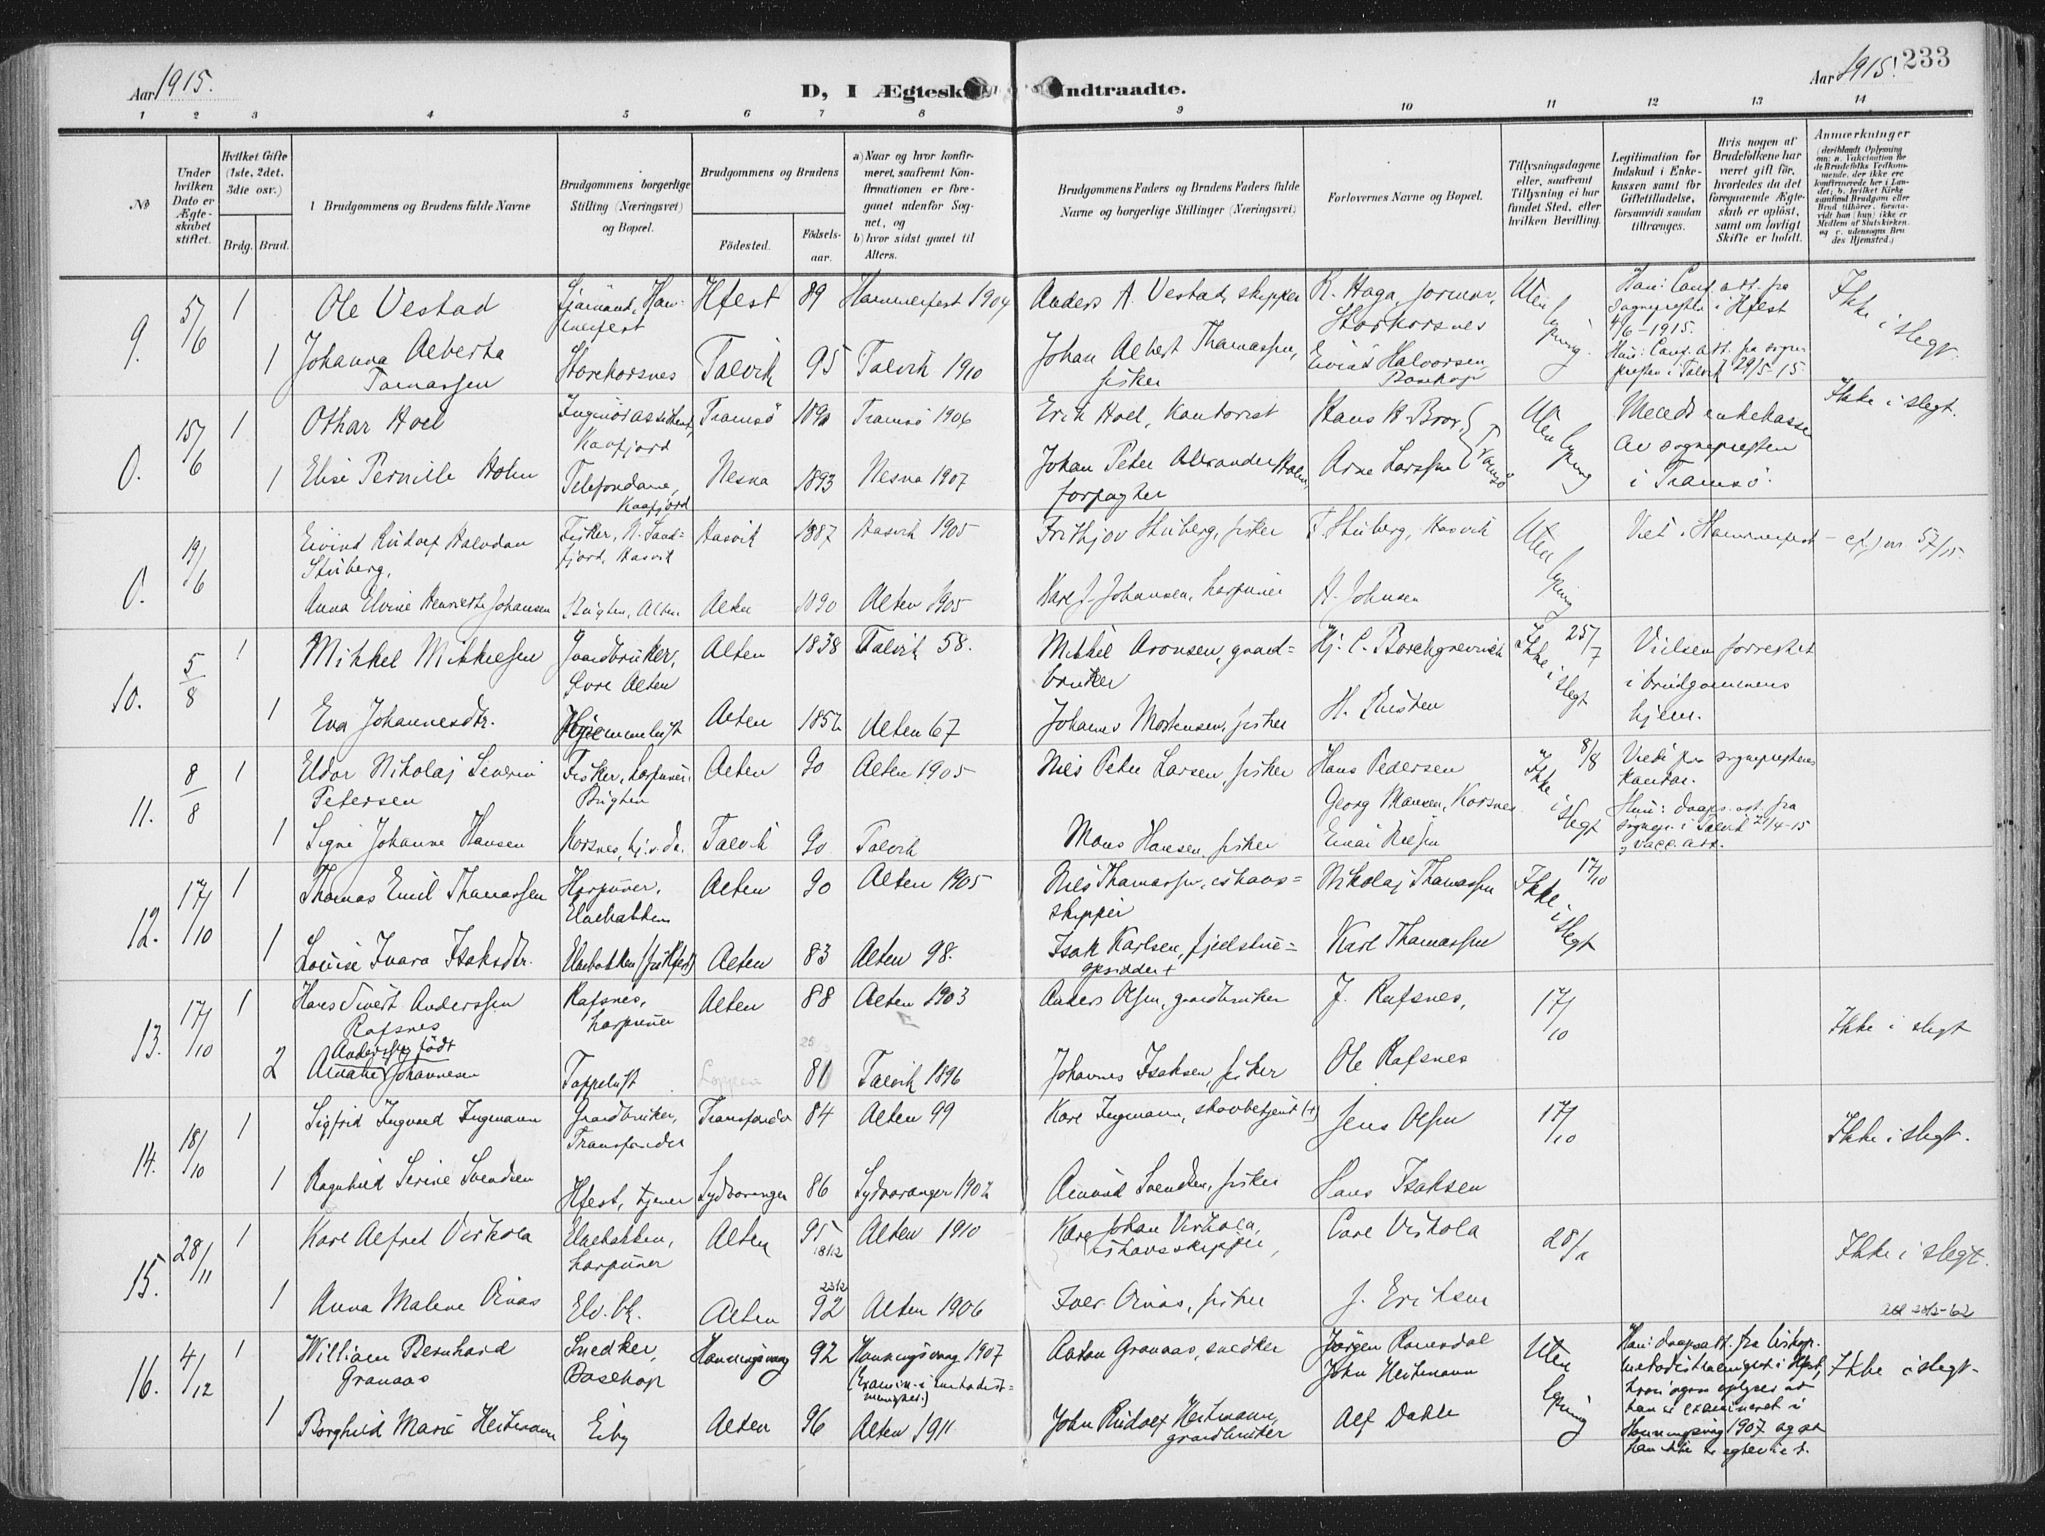 Aar 1915.
D, I Ægtesk
Indtraadte.
Aar 1915.
233
1 2 3 4 5 6 7 8 9 10 11 12 13 14
No
Under hvilken Dato er Ægteskabet stiftet.
Hvilket Gifte (1ste, 2det, 3die osv.)
Brdg. Brud.
Brudgommens og Brudens fulde Navne
Brudgommens borgerlige Stilling (Næringsvei) og Bopæl.
Brudgommens og Brudens
Fødested.
Fødselsaar.
a) Naar og hvor konfirmeret, saafremt Konfirmationen er foregaaet udenfor Sognet, og
b) hvor sidst gaaet til Alters.
Brudgommens Faders og Brudens Faders fulde Navne og borgerlige Stillinger (Næringsvei)
Forlovernes Navne og Bopæl.
Tillysningsdagene eller, saafremt Tillysning ei har fundet Sted, efter hvilken Bevilling.
Legitimation for Indskud i Enkekassen samt for Giftetilladelse, forsaavidt saadan tiltrænges.
Hvis nogen af Brudefolkene har været gift før, hvorledes da det foregaaende Ægteskab er opløst, samt om lovligt Skifte er holdt.
Anmærkninger
(deriblandt Oplysning om: a. Vakcination for de Brudefolks Vedkommende, der ikke ere konfirmerede her i Landet; b. hvilket Kirkesamfund Brudgom eller Brud tilhører, forsaavidt han (hun) ikke er Medlem af Statskirken, og c. udensogns Brudes Hjemsted.)
9. 5/6 1 Ole Vestad Sjømand, Hammerfest Hfest 89 Hammerfest 1904 Anders A. Vestad, skipper R. Haga, Storkorsnes Uten lysning. i Hfest 4/6-1915. Ikke i slegt.
1 Johanna Alberta Tomassen Storekorsnes Talvik 95 Talvik 1910 Johan Albert Thomassen, fisker Eivind Halvorsen, Bosekop i Talvik 29/5-15
0. 15/6 1 Othar Hoel Ingeniørassistent, Kaafjord Tromsø 1890 Tromsø 1906 Erik Hoel, Kontorist Hans H. Broz Uten lysning Meedt enkekasse av sogneprästen i Tromsø. Ikke i slegt.
1 Elise Pernille Holm Telefondame, Kaafjord Nesna 1893 Nesna 1907 Johan Peter Alexander Holm, forpagter Arne Larssen Tromsø
0. 19/6 Eivind Rudolf Halvdan Stuberg, Fisker, N. Sandfjord, Hasvik Hasvik 1887 Hasvik 1905 Frithjov Stuberg, fisker F Stuberg, Hasvik Uten lysning Viet i Hammerfest - cf. jvr. 57/15.
Anna Elvine Henriette Johansen Bugten, Alten Alten 1890 Alten 1905 Karl J. Johansen, harpuner H. Johnsen
10. 5/8 1 Mikkel Mikkelsen Gaardbruker, Øvre Alten Alten 1838 Talvik 58. Mikkel Aronsen, gaardbruker Hj. C. Borchgrevink 25/7 Ikke i slegt Vielsen forrettet i brudgommens hjem.
1 Eva Johannesdtr. Hjemmeluft Alten 1852 Alten 67 Johannes Mortensen, fisker
11. 8/8 1 Eldor Nikolaj Severin Petersen Fisker, harpuner, Bugten Alten 90 Alten 1905 Nils Peter Larsen, fisker Hans Pedersen 8/8 Ikke i slegt Viedt paa sogneprestens kontor.
Georg Mansen, Korsnes
1 Signe Johanne Hansen Korsnes, hj. v. da. Talvik 90 Talvik Mons Hansen, fisker Einar Nilsen Hun: daaps. att. fra sognepr. i Talvik 2/4-15 og vacc. att.
12. 17/10 1 Thomas Emil Thomassen Harpuner, Elvebakken Alten 90 Alten 1905 Nils Thomassen, ishavsskipper Nikolaj Thomassen 17/10 Ikke i slegt
1 Louise Ivara Isaksdtr. Elvebakken Alten 83 Alten 98. Isak Karlsen, fjeldstueopsidder + Karl Thomassen
13. 17/10 1 Hans Sivert Anderssen Rafsnes Rafsnes, harpuner Alten 88 Alten 1903 Anders Olsen, gaardbruker J. Rafsnes, 17/10 Ikke i slegt
2 Amalie Anderssen født Johannesen Tappeluft Loppen 81 Talvik 1896 Johannes Isaksen, fisker Ole Rafsnes
14. 18/10 1 Sigfrid Ingvald Ingmann Gaardbruker, Transfarelv Transfarelv 84 Alten 99 Karl Ingmann, skovbetjent (+) Jens Olsen 17/10 Ikke i slegt.
1 Ragnhild Serine Svendsen Hfest, tjener Sydvaranger 86 Sydvaranger 1902 Amund Svendsen, fisker Hans Isaksen
15. 28/11 1 Karl Alfred Virkola Elvebakken, harpuner Alten 95 18/12 Alten 1910 Karl Johan Virkola, ishavsskipper, Carl Virkola 28/11 Ikke i slegt.
1 Anna Malene Oinas Elv. bk. Alten 23/12 92 Alten 1906 Iver Oinas, fisker J. Eriksen
16. 4/12 1 William Bernhard Granaas Snedker, Bosekop Honningsvaag 92 Honningsvaag 1907 Anton Granaas, snedker Jørgen Romsdal Uten lysning Han: daapsatt. fra biskop. metodistmenighet i Hfest, Ikke i slegt
John Heitmann
1 Borghild Marie Heitmann Eiby Alten 96 Alten 1911 John Rudolf Heitmann, gaardbruker Alf Dahle han er examineret i Honningsvåg 1907 og at han ikke